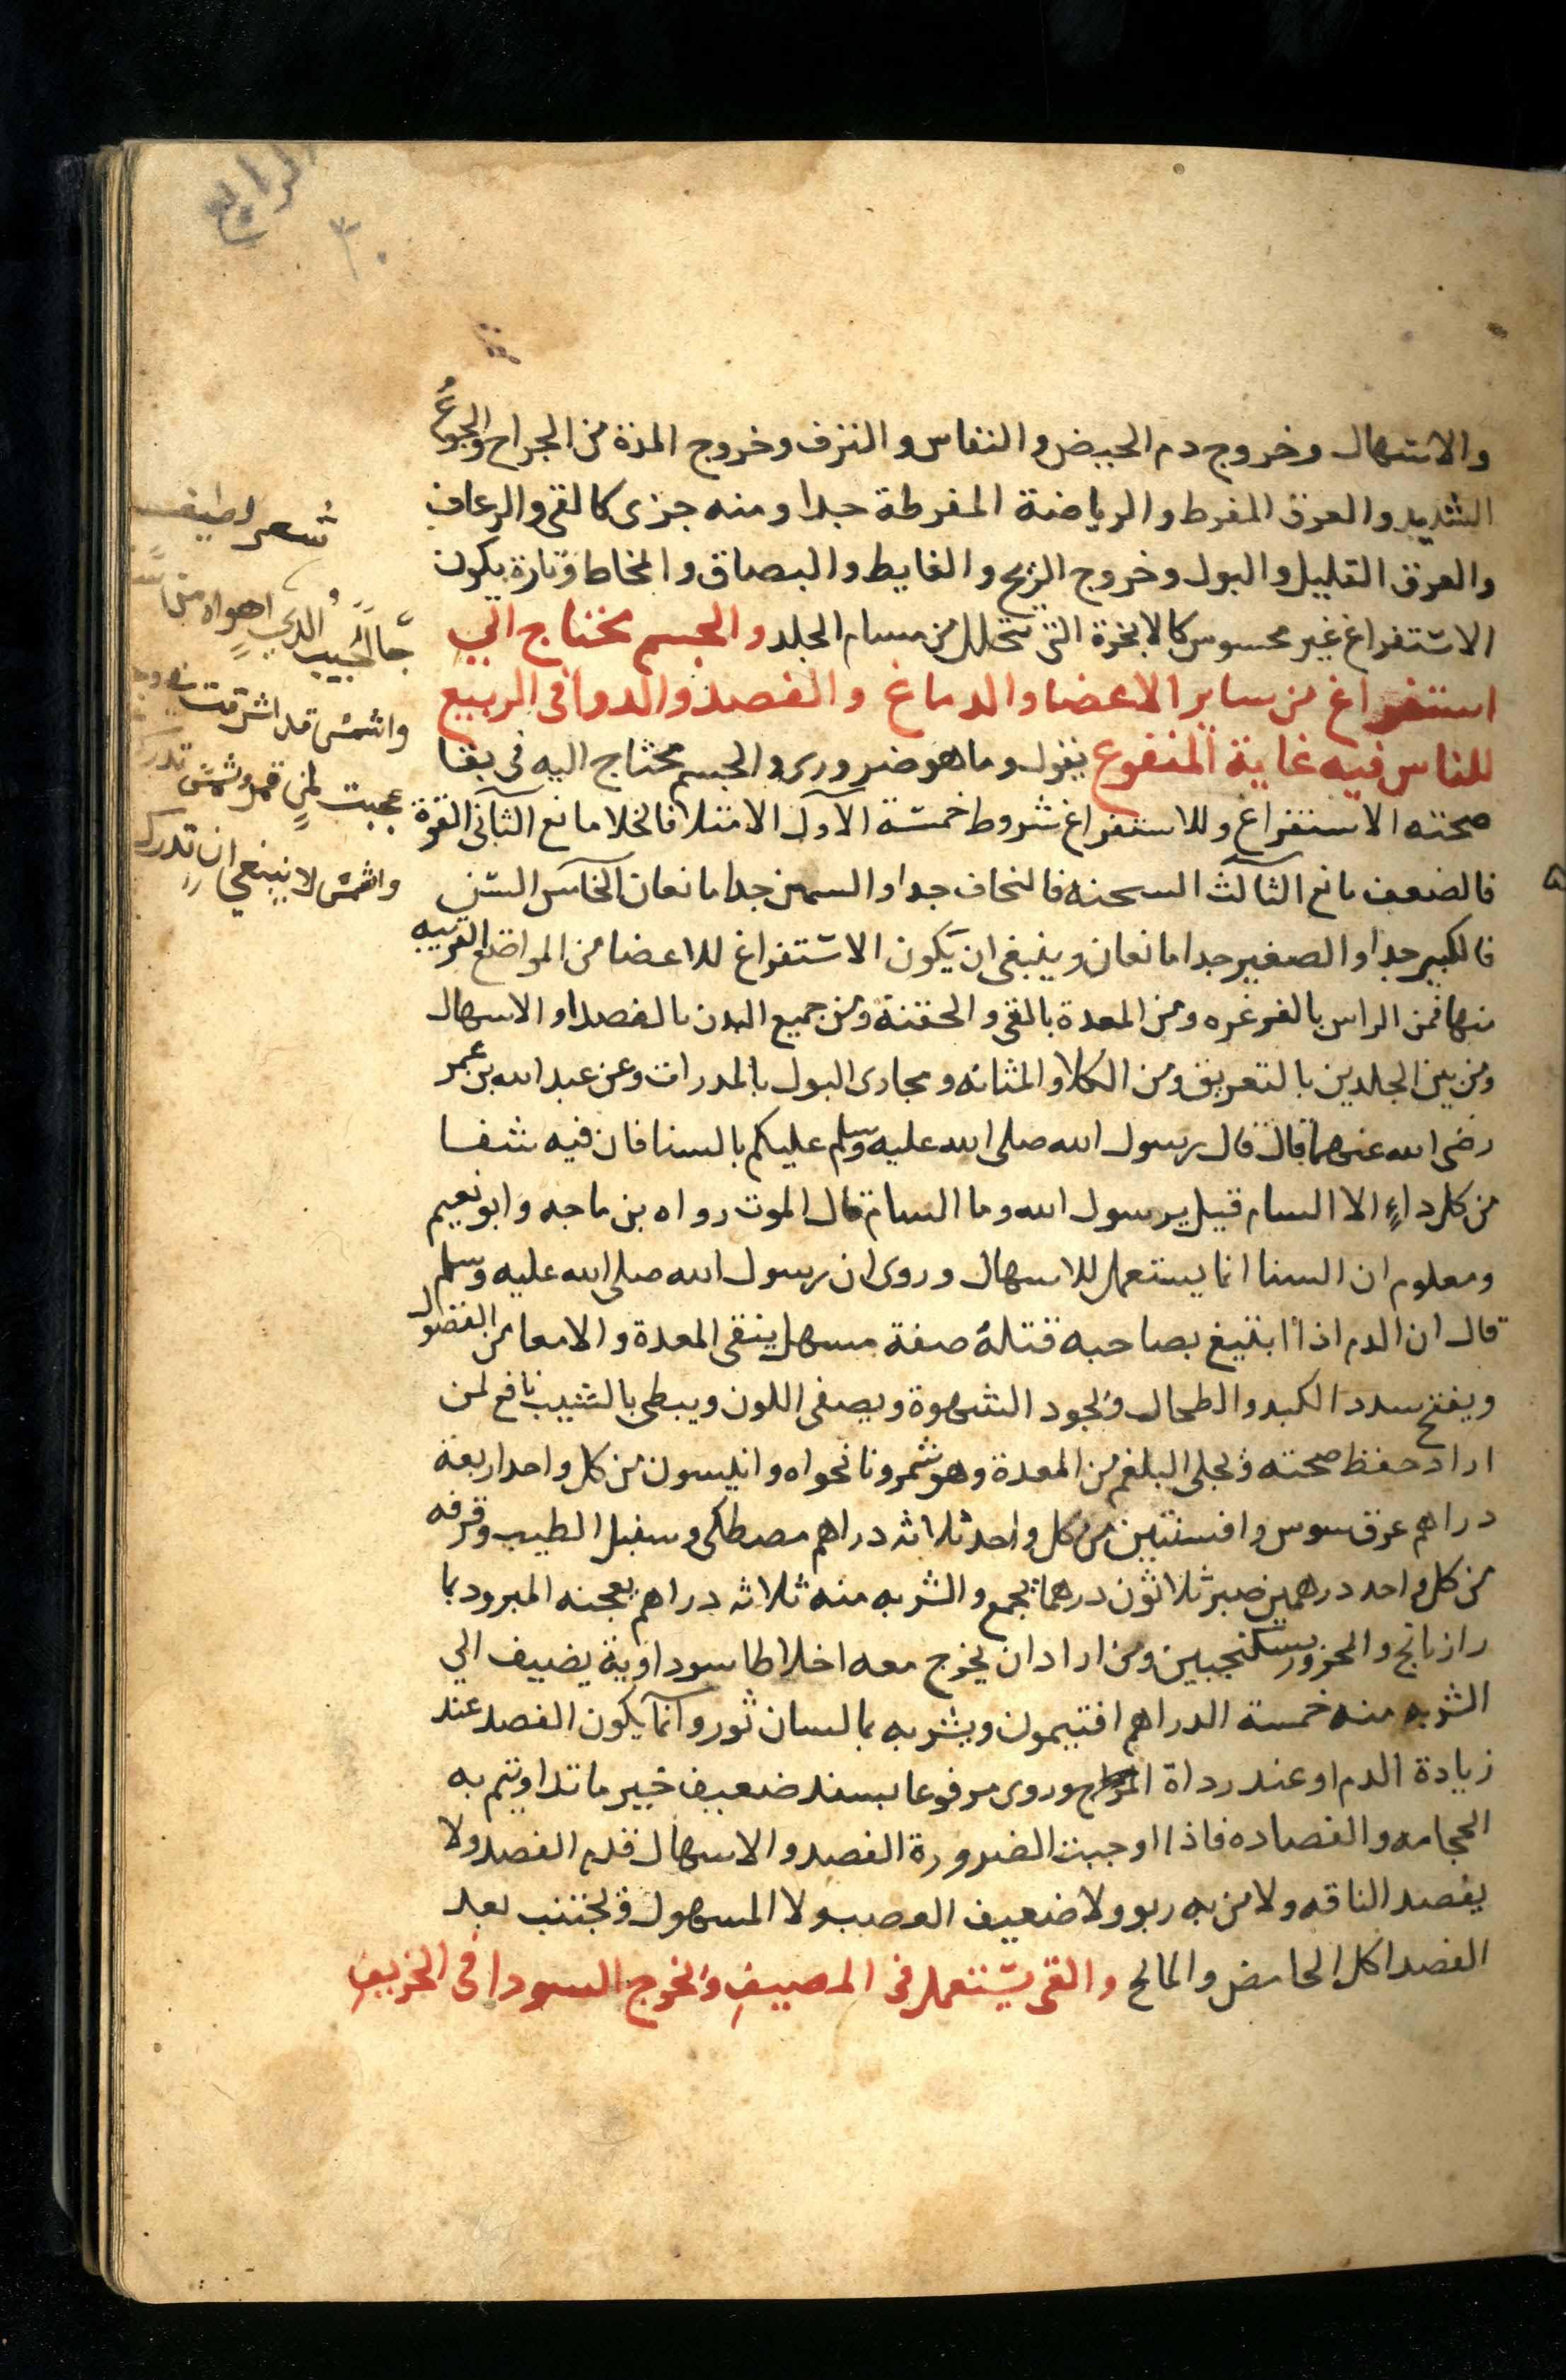 الرابع
٣٠
والاستهال وخروج دم الحيض والنفاس والنزف وخروج المدة من الجراح والجوع
الشديد والعرق المفرط والرياضة المفرطة جدا ومنه جزى كالقى والرعاف
والعرق القليل والبول وخروج الريح والغايط والبصاق والمخاط وتارة يكون
الاستفراغ غير محسوس كالابخرة التى تتحلل من مسام الجلد والجسم يحتاج الي
استفراغ من ساير الاعضا والدماغ والفصد والدوا فى الربيع
للناس فيه غاية المنفوع يقول وما هو ضرورى والجسم محتاج اليه فى بقا
صحته الاستفراغ وللاستفراغ شروط خمسة الاول الامتلا فالخلا مانع الثانى القوة
فالضعف مانع الثالث السحنه فالنحاف جدا والسمين جدا مانعان الخامس السن
فالكبير جدا والصغير جدا مانعان وينبغى ان يكون الاستفراغ للاعضا من المواضع القريبه
منها فمن الراس بالغرغره ومن المعدة بالقى والحقنة ومن جميع البدن بالفصد او الاسهال
ومن بين الجلدين بالتعريق ومن الكلا والمثانه ومجارى البول بالمدرات وعن عبد الله بن عمر
رضى الله عنهما قال قال رسول الله صلى الله عليه وسلم عليكم بالسنا فان فيه شفا
من كل داءٍ الا السام قيل يرسول الله وما السام قال الموت رواه بن ماجه وابو نعيم
ومعلوم ان السنا انما يستعمل للاسهال وروى ان رسول الله صلى الله عليه وسلم
قال ان الدم اذا ابتيغ بصاحبه قتله صفة مسهل ينقى المعدة والامعا من الفضول
ويفتح سدد الكبد والطحال ويجود الشهوة ويصفى اللون ويبطى بالشيب نافع لمن
اراد حفظ صحته ويجلى البلغم من المعدة وهو شمر ونانخواه وانيسون من كل واحد اربعة
دراهم عرق سوس وافسنتين من كل واحد ثلاثه دراهم مصطكى وسنبل الطيب وقرفه
من كل واحد درهمين صبر ثلاثون درهما يجمع والشربه منه ثلاثه دراهم يعجنه المبرود بما
رازيانج والمحرور بسكنجبين ومن اراد ان يخرج معه اخلاطا سوداوية يضيف الي
الشربه منه خمسة الدراهم افتيمون ويشربه بما لسان ثور وانما يكون الفصد عند
زيادة الدم او عند رداة المزاج وروى مرفوعا بسند ضعيف خير ما تداويتم به
الحجامه والفصاده فاذا اوجبت الضرورة الفصد والاسهال قدم الفصد ولا
يفصد الناقه ولا من به ربو ولا ضعيف العصب ولا المسهول ويجتنب بعد
الفصد اكل الحامض والمالح والقى يستعمل فى المصيف ويخرج السودا فى الخريف
شعر لطيف
جا الحبيب الذي اهواه من
والشمس قد اشرقت في
عجبت لمن قمر وشمس تدرك
والشمس لا ينبغي ان تدرك